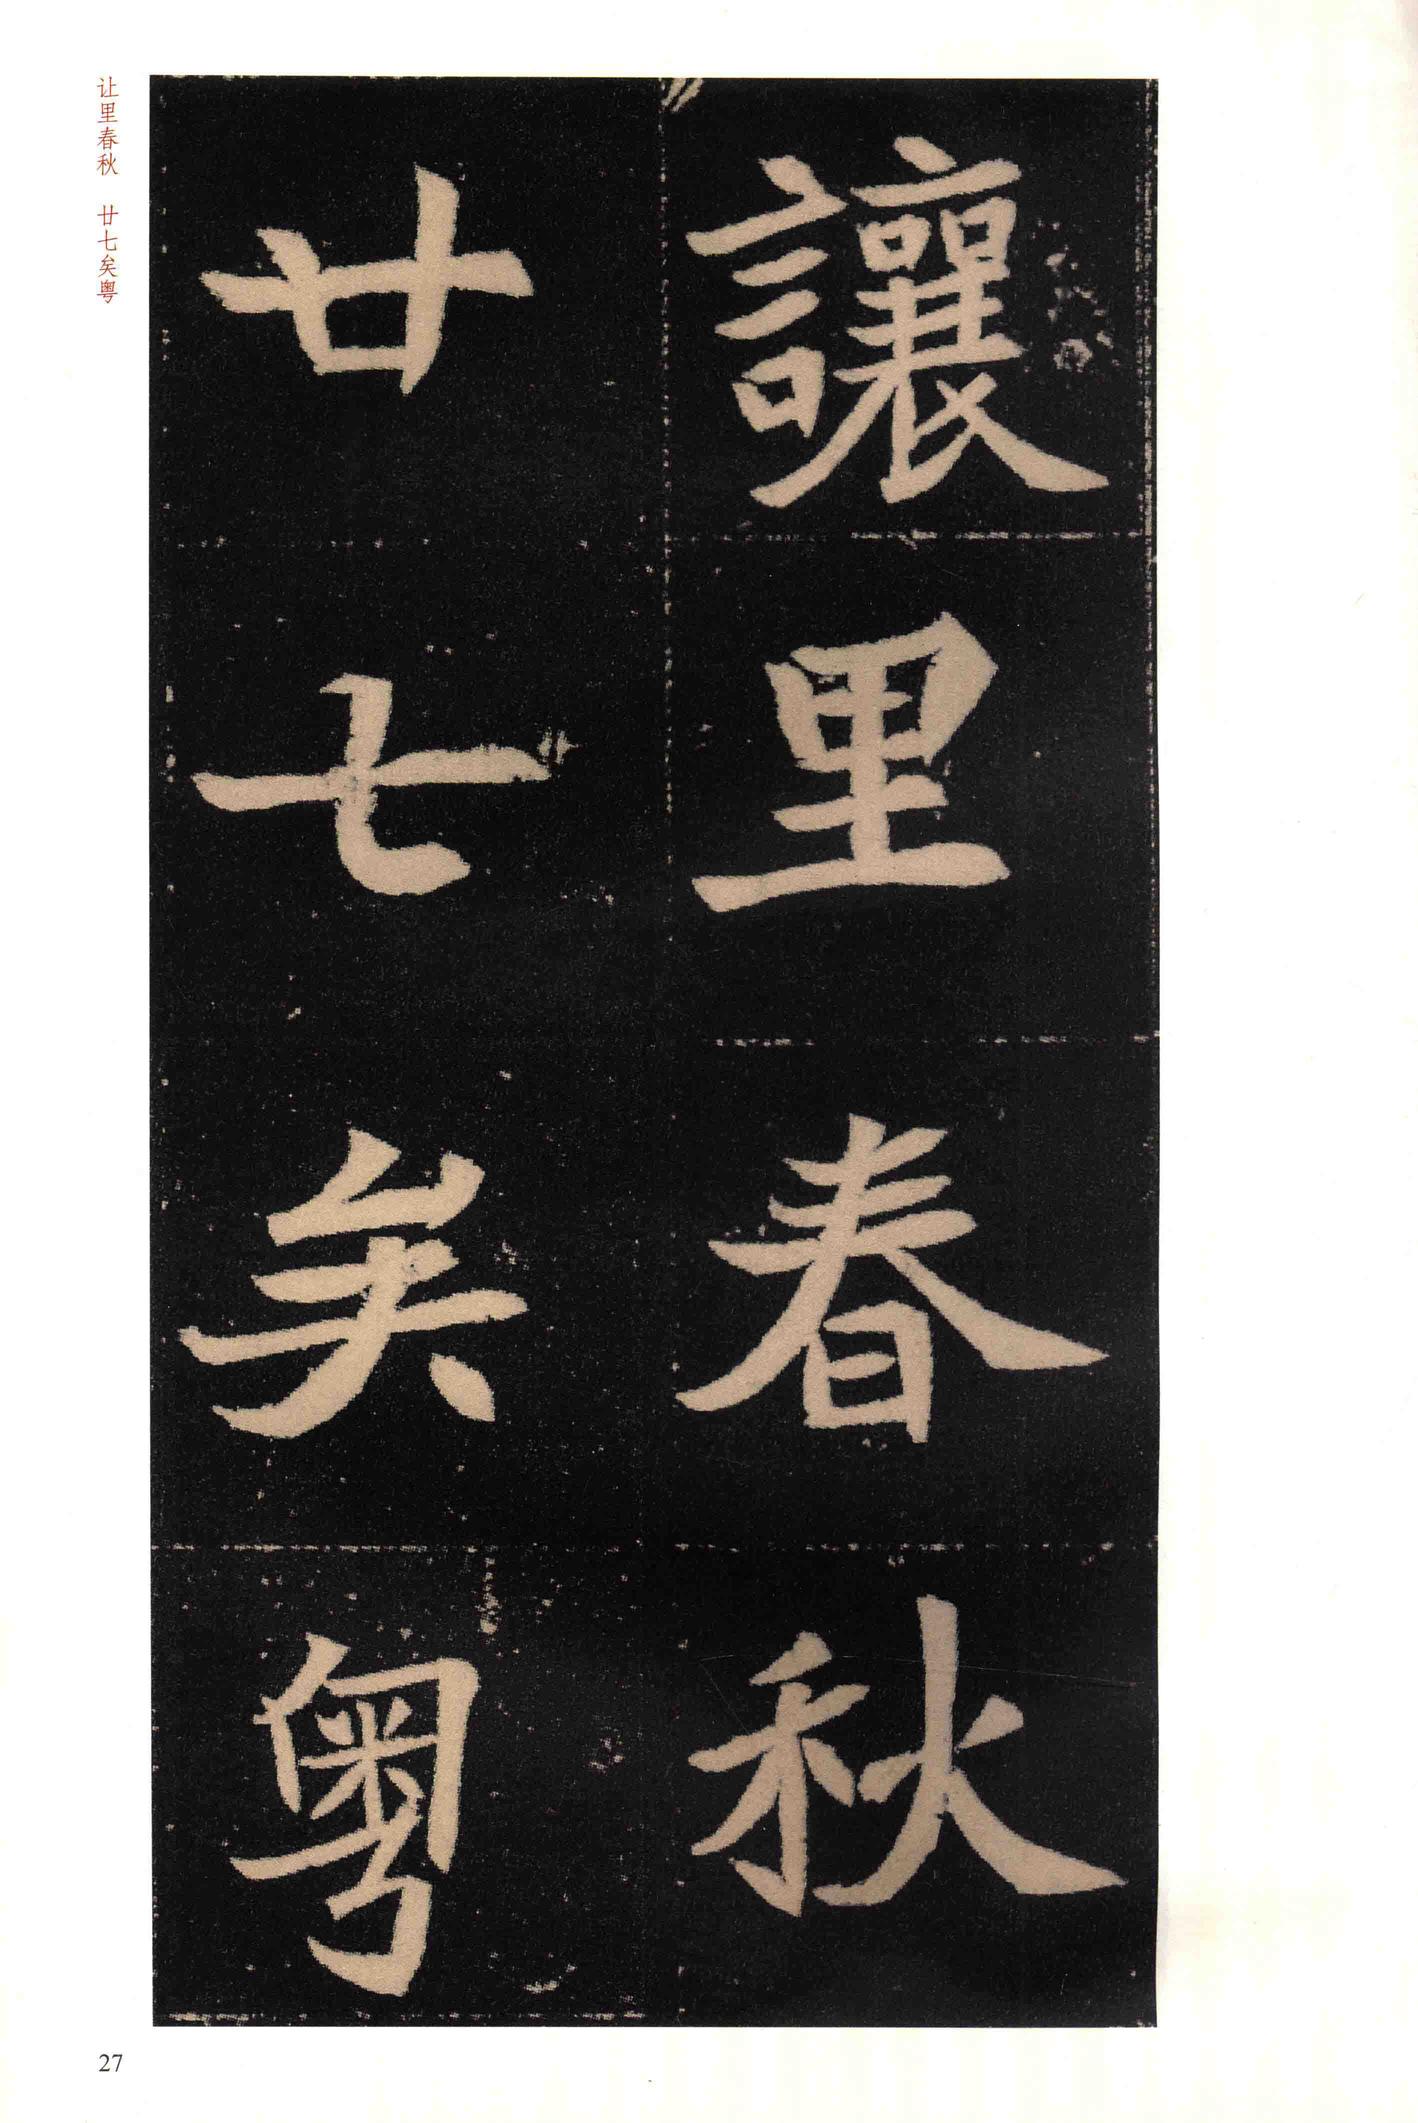 讓里春秋
廿七矣粤
让里春秋 廿七矣粤
27